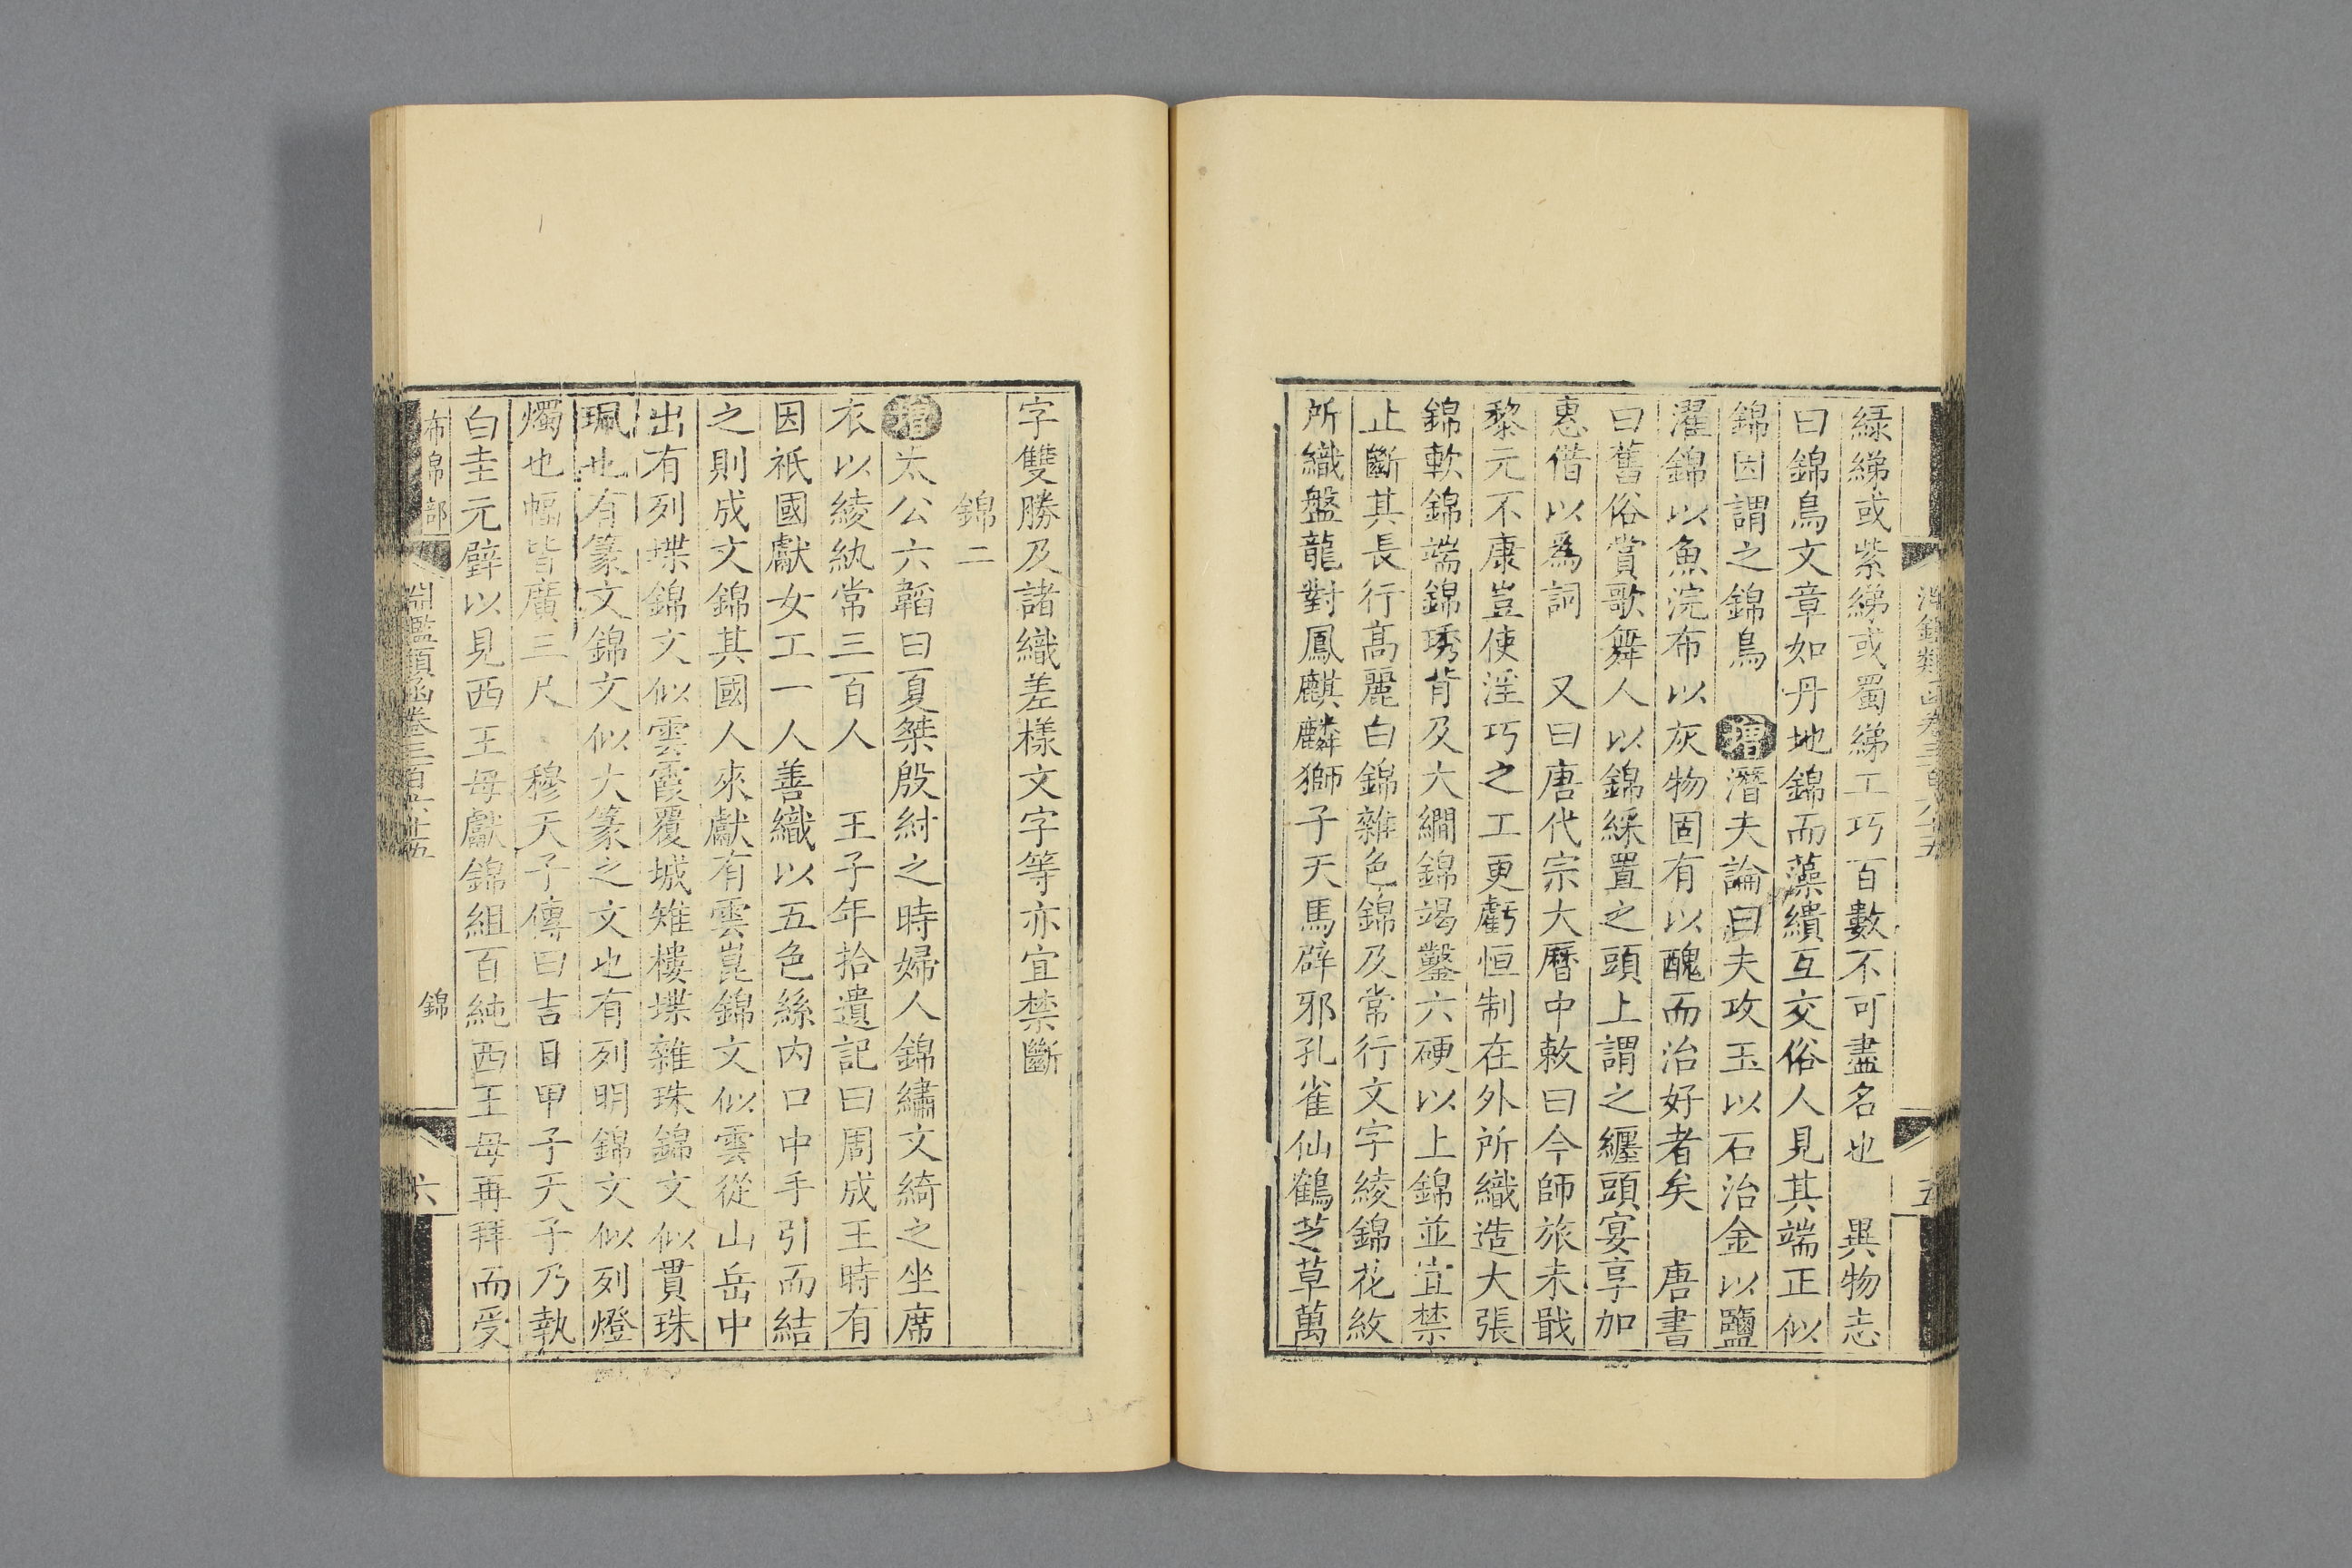 綠綈或紫綈或蜀綈工巧百數不可盡名也　異物志
曰錦鳥文章如丹地錦而藻繢互交俗人見其端正似
錦因謂之錦鳥　增潛夫論曰夫攻玉以石治金以鹽
濯錦以魚浣布以灰物固有以醜而治好者矣　唐書
曰舊俗賞歌舞人以錦綵置之頭上謂之纏頭宴享加
惠借以爲詞　又曰唐代宗大曆中敕曰今師旅未戢
黎元不康豈使淫巧之工更虧恒制在外所織造大張
錦軟錦端錦琇背及大繝錦竭鑿六硬以上錦並宜禁
止斷其長行高麗白錦雜色錦及常行文字綾錦花紋
所織盤龍對鳳麒麟獅子天馬辟邪孔雀仙鶴芝草萬
字雙勝及諸織差樣文字等亦宜禁斷
錦二
增太公六韜曰夏桀殷紂之時婦人錦繡文綺之坐席
衣以綾紈常三百人　王子年拾遺記曰周成王時有
因祇國獻女工一人善織以五色絲内口中手引而結
之則成文錦其國人來獻有雲崑錦文似雲從山岳中
出有列堞錦文似雲霞覆城雉樓堞雜珠錦文似貫珠
珮也有篆文錦文似大篆之文也有列明錦文似列燈
燭也幅皆廣三尺　穆天子傳曰吉日甲子天子乃執
白圭元璧以見西王母獻錦組百純西王母再拜而受
布帛部
淵鑑類函卷三百六十五
錦
六